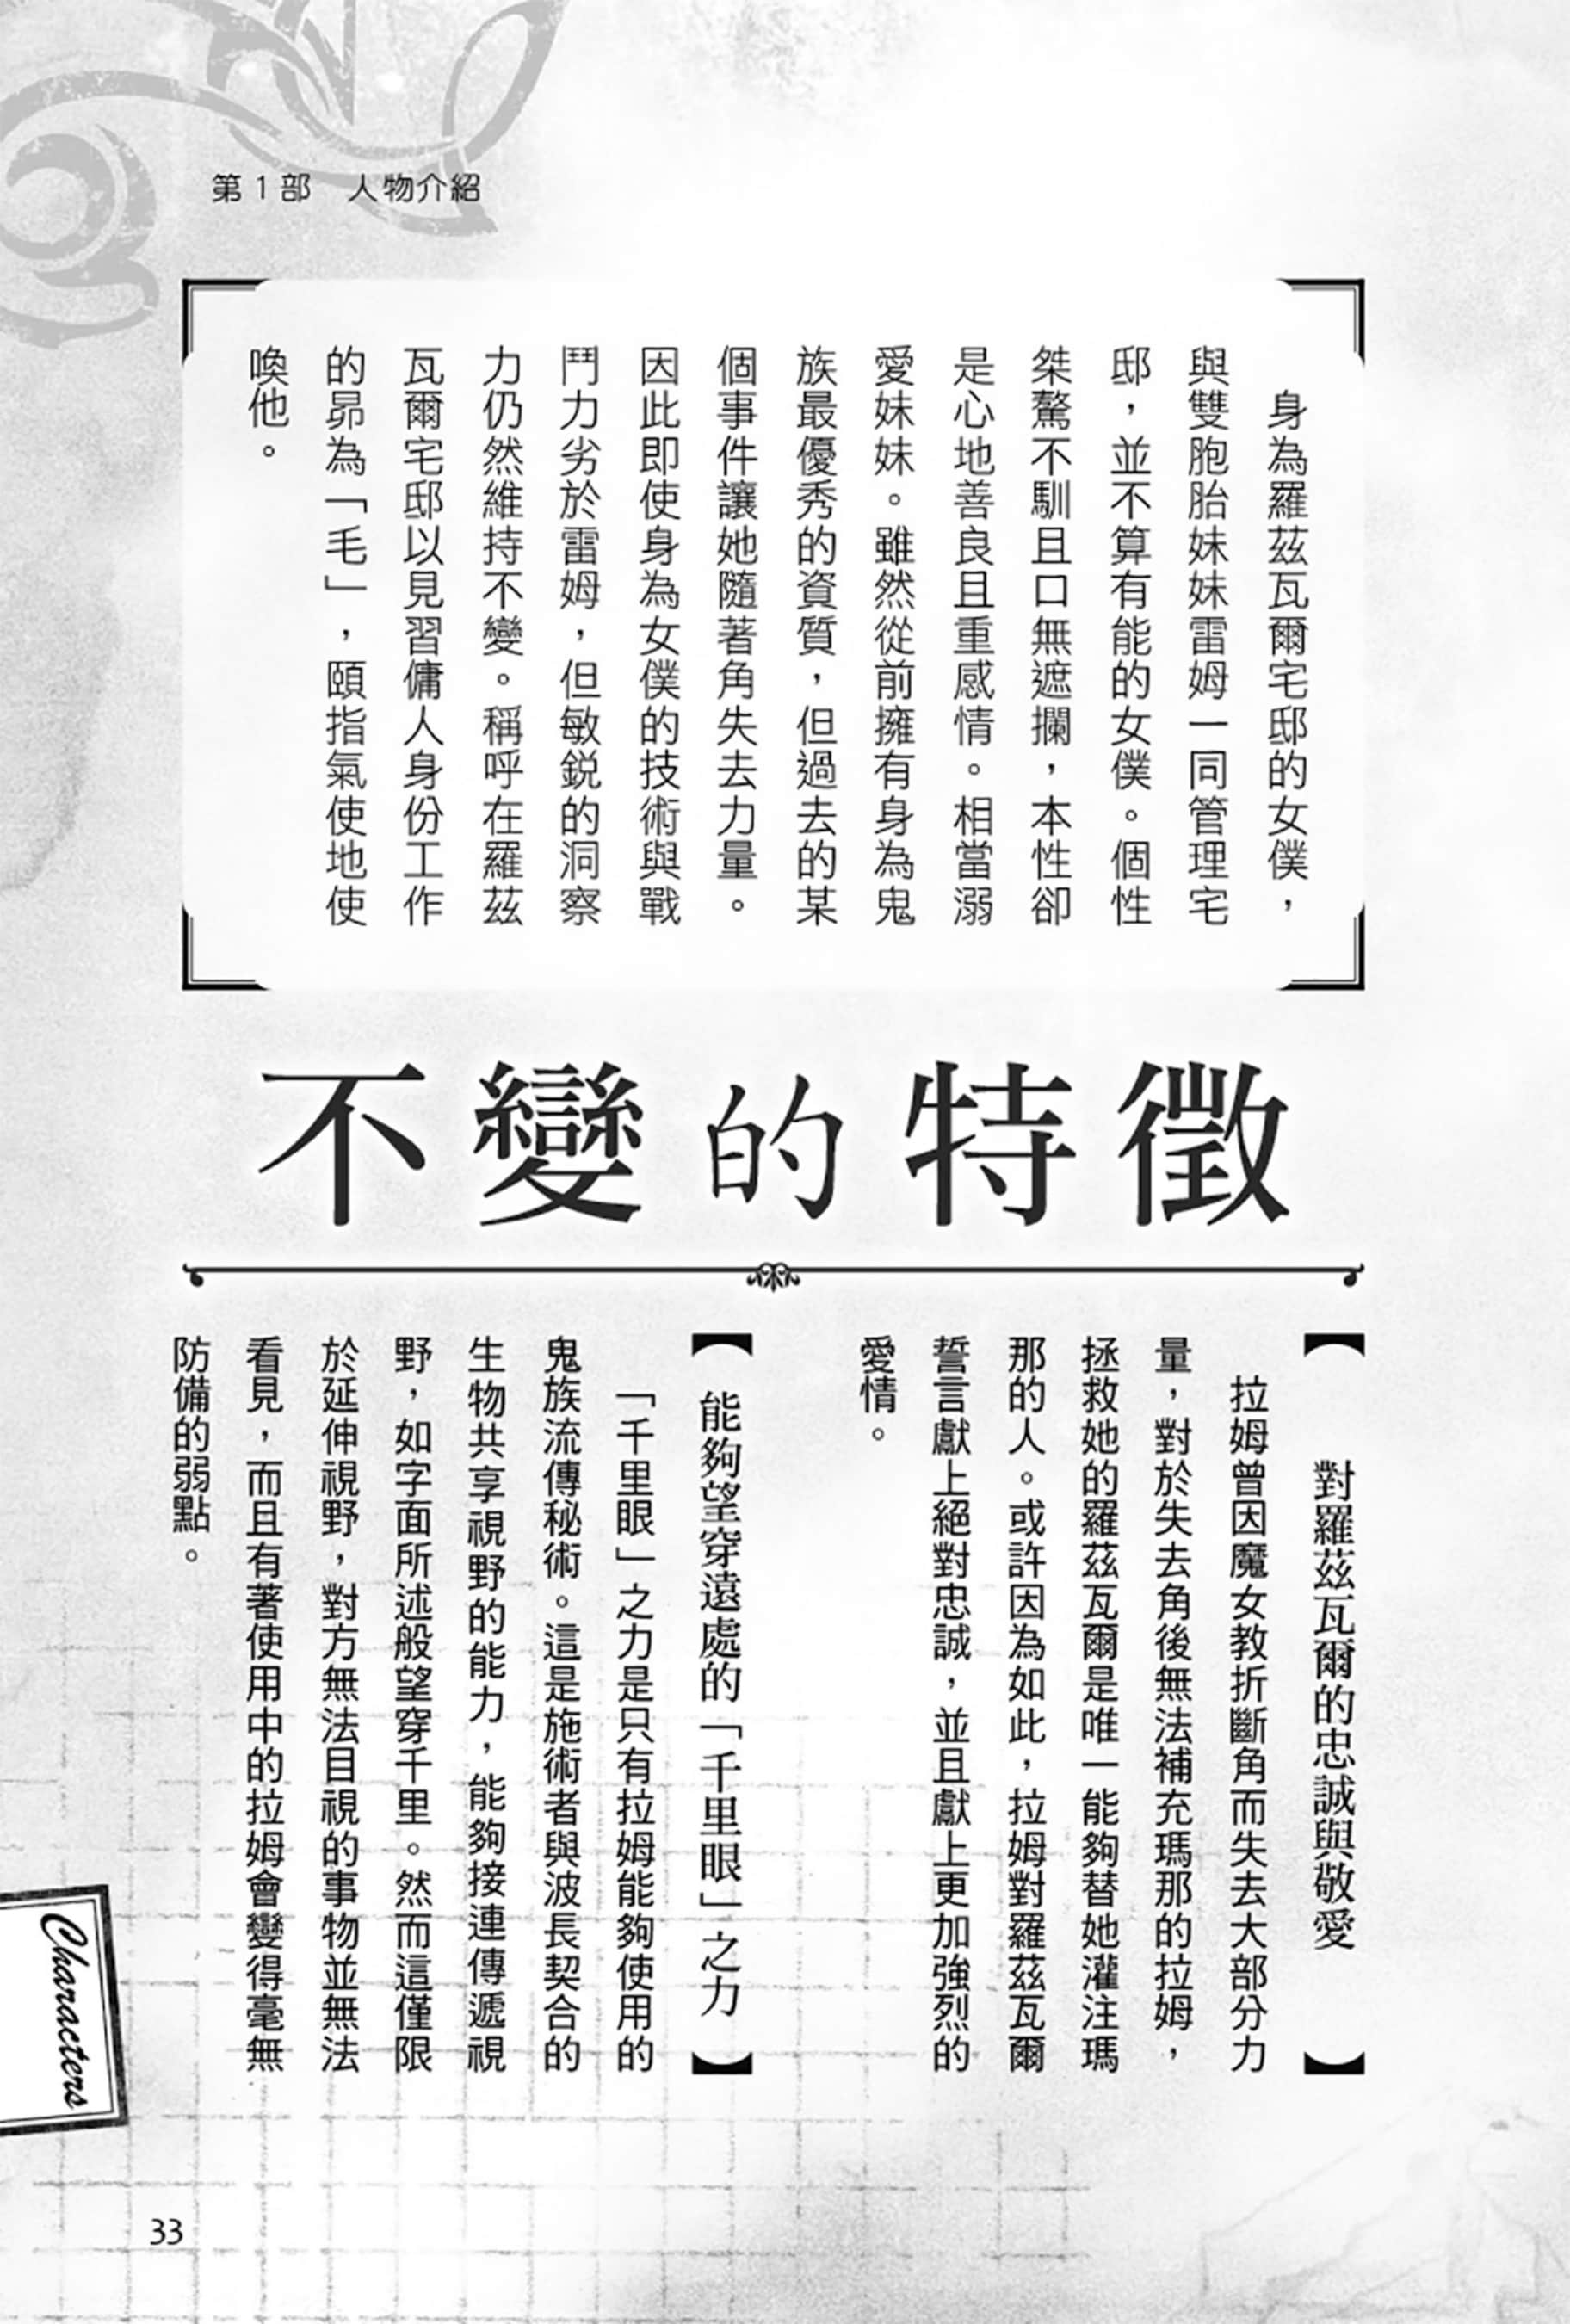 第1部　人物介紹
身為羅茲瓦爾宅邸的女僕，
與雙胞胎妹妹雷姆一同管理宅
邸，並不算有能的女僕。個性
桀驁不馴且口無遮攔，本性卻
是心地善良且重感情。相當溺
愛妹妹。雖然從前擁有身為鬼
族最優秀的資質，但過去的某
個事件讓她隨著角失去力量。
因此即使身為女僕的技術與戰
鬥力劣於雷姆，但敏銳的洞察
力仍然維持不變。稱呼在羅茲
瓦爾宅邸以見習傭人身份工作
的昴為「毛」，頤指氣使地使
喚他。
不變的特徵
【對羅茲瓦爾的忠誠與敬愛】
拉姆曾因魔女教折斷角而失去大部分力
量，對於失去角後無法補充瑪那的拉姆，
拯救她的羅茲瓦爾是唯一能夠替她灌注瑪
那的人。或許因為如此，拉姆對羅茲瓦爾
誓言獻上絕對忠誠，並且獻上更加強烈的
愛情。
【能夠望穿遠處的「千里眼」之力】
「千里眼」之力是只有拉姆能夠使用的
鬼族流傳秘術。這是施術者與波長契合的
生物共享視野的能力，能夠接連傳遞視
野，如字面所述般望穿千里。然而這僅限
於延伸視野，對方無法目視的事物並無法
看見，而且有著使用中的拉姆會變得毫無
防備的弱點。
Characters
33